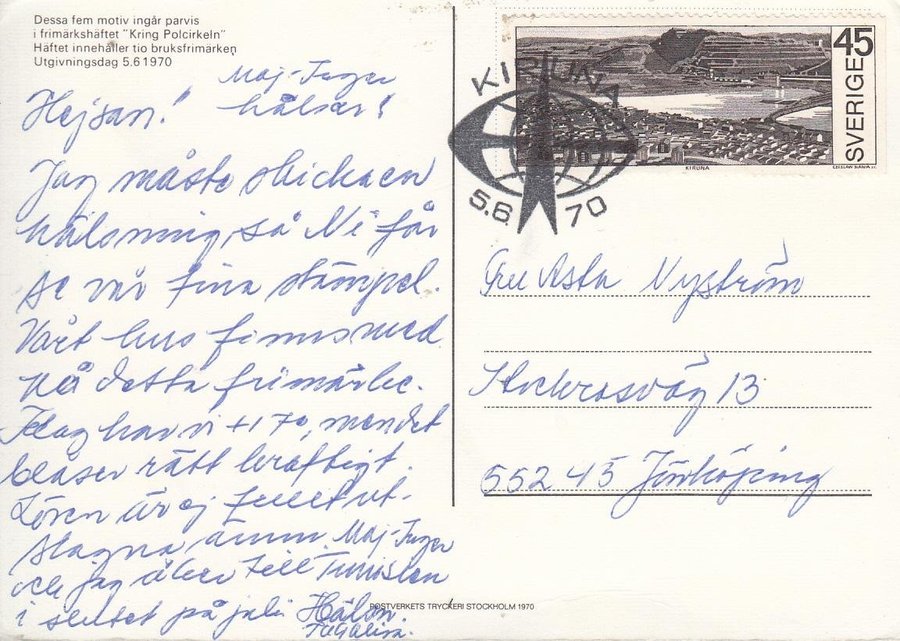 Dessa fem motiv ingår parvis
i frimärkshäftet "Kring Polcirkeln"
Häftet innehåller tio bruksfrimärken
Utgivningsdag 5.6 1970
Maj-Inger
hälsar!
Hejsan!
Jag måste skicka en
hälsning, så Ni får
se vår fina stämpel.
Vårt hus finns med
på detta frimärke.
Idag har vi +170, men det
blåser rätt kraftigt.
Löven är ej fullt ut-
slagna ännu. Maj-Inger
och jag åker till Tunisien
i slutet på juli. Hälsn.
KIRUNA
5.6 70
45
SVERIGE
KIRUNA
CZESLAW SLANIA SC.
Asta Nyström
13
552 45 Jönköping
POSTVERKETS TRYCKERI STOCKHOLM 1970